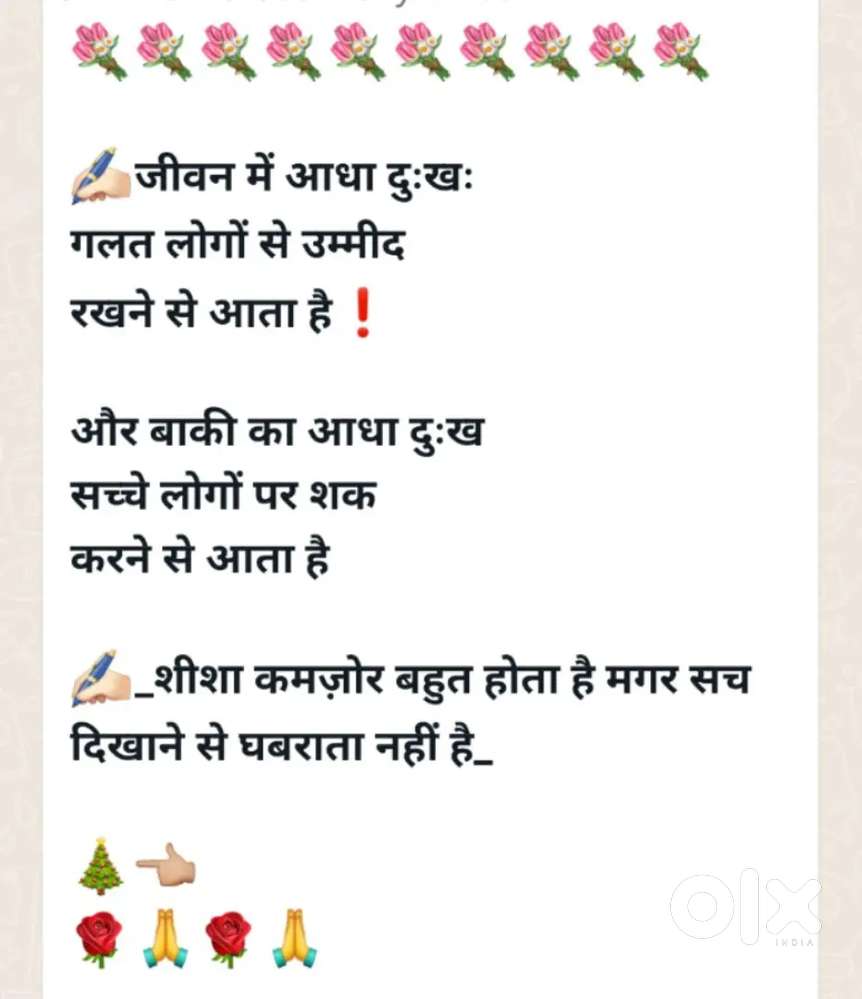 💐💐💐💐💐💐💐💐💐💐
✍🏻जीवन में आधा दुःखः
गलत लोगों से उम्मीद
रखने से आता है❗
और बाकी का आधा दुःख
सच्चे लोगों पर शक
करने से आता है
✍🏻_शीशा कमज़ोर बहुत होता है मगर सच
दिखाने से घबराता नहीं है_
🎄👈🏼
🌹🙏🌹🙏
olx
INDIA